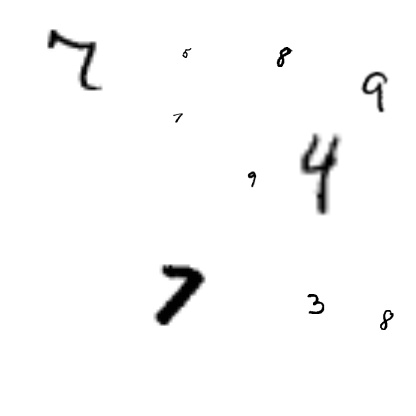 7 5 8 9
7
9 4
7 3 8